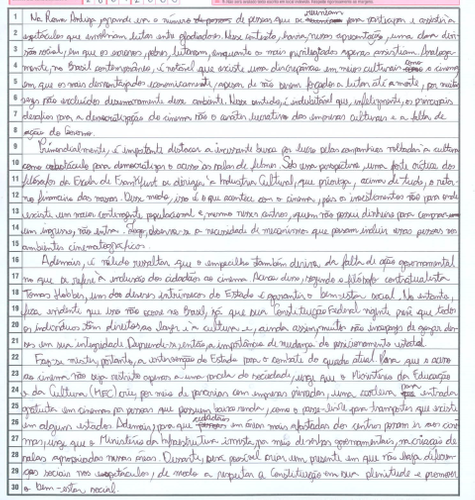 Na Roma Antiga, grande era o número de pessoas que se reuniam para participar e assistir a
espetáculos que envolviam lutas entre gladiadores. Nesse contexto, havia, nessas apresentações, uma clara divi-
são social, em que os escravos, pobres, lutavam, enquanto os mais privilegiados apenas assistiam. Analoga-
mente, no Brasil contemporâneo, é notável que existe uma discrepância em meios culturais, como o cinema,
em que os mais desvantajados economicamente, apesar de não serem forçados a lutar até a morte, por muitas
vezes são excluídos desumanamente desse ambiente. Nesse sentido, é indubitável que, infelizmente, os principais
desafios para a democratização do cinema são o caráter lucrativo das empresas culturais e a falta de
ação do Governo.
Primordialmente, é importante destacar a incessante busca por lucro pelas companhias voltadas à cultura
como obstáculo para democratizar o acesso às salas de filmes. Sob essa perspectiva, uma forte crítica dos
filósofos da Escola de Frankfurt se dirigia à Indústria Cultural, que prioriza, acima de tudo, o retor-
no financeiro das massas. Desse modo, isso é o que acontece com o cinema, pois os investimentos vão para onde
existe um maior contingente populacional e, mesmo nesses centros, quem não possui dinheiro para comprar
um ingresso, não entra. Logo, observa-se a necessidade de mecanismos que possam incluir essas pessoas nos
ambientes cinematográficos.
Ademais, é válido ressaltar que o empecilho também deriva da falta de ação governamental
no que se refere à inclusão dos cidadãos ao cinema. Acerca disso, segundo o filósofo contratualista
Tomas Hobbes, um dos deveres intrínsecos do Estado é garantir o bem-estar social. No entanto,
fica evidente que isso não ocorre no Brasil, já que sua Constituição Federal vigente prevê que todos
os indivíduos têm direitos ao lazer e à cultura e, ainda assim, muitos são incapazes de gozar des-
ses em sua integridade. Depreende-se, então, a importância de mudança do posicionamento estatal.
Faz-se mister, portanto, a intervenção do Estado para o combate do quadro atual. Para que o acesso
ao cinema não seja restrito apenas a uma parcela da sociedade, urge que o Ministério da Educação
e da Cultura (MEC) crie, por meio de parcerias com empresas privadas, uma carteira para entrada
gratuita em cinemas por pessoas que possuem baixa renda, como o passe-livre para transportes que existe
em alguns estados. Ademais, para que cidadãos em áreas mais afastadas dos centros possam ir aos cine-
mas, urge que o Ministério da Infraestrutura invista, por meio de verbas governamentais, na criação de
salas apropriadas nessas áreas. Durante, será possível criar um presente em que não haja diferen-
ças sociais nos espetáculos, de modo a respeitar a Constituição em sua plenitude e promover
o bem-estar social.